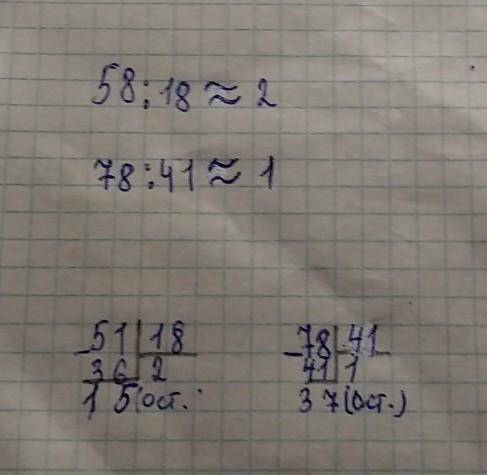 58:18≈2
78:41≈1
-51|18 -78|41
36|2 41|1
15(ост. 37(ост.)